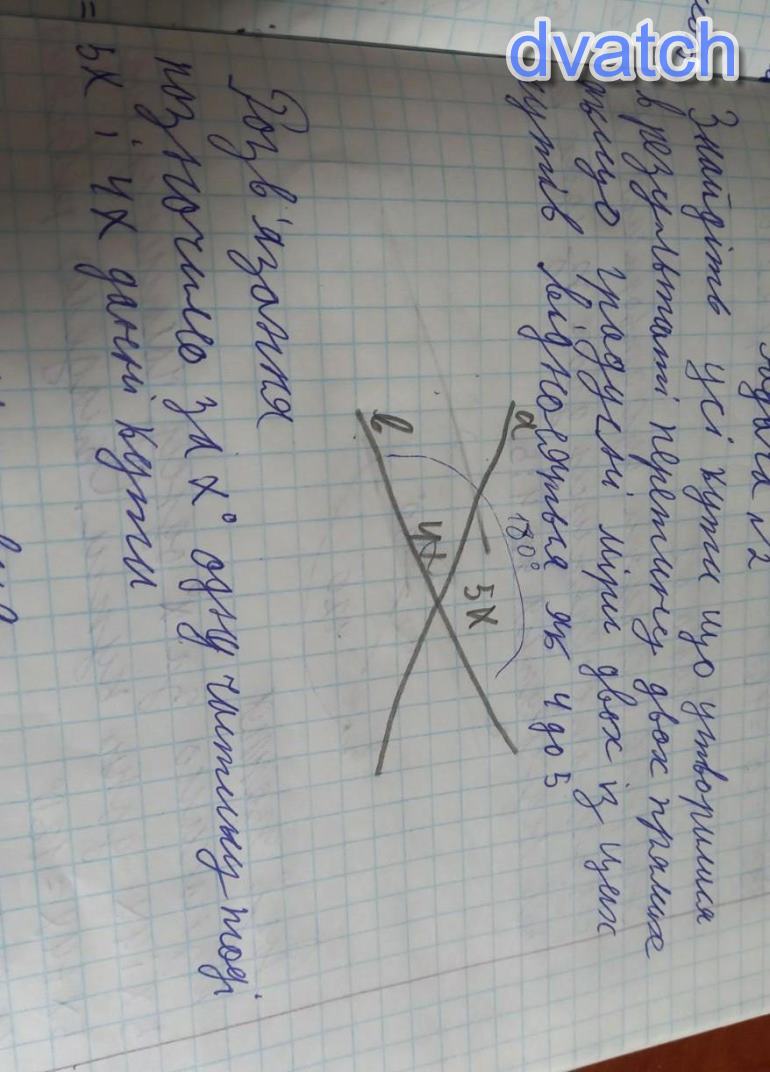 dvatch
Задача №2
Знайдіть усі кути що утворилися
в результаті перетину двох прямих
якщо градусні міри двох із цих
кутів відносяться як 4 до 5
a
180°
5x
4x
b
Розв'язання
позначимо за x° одну частину тоді
5x і 4x данні кути
=